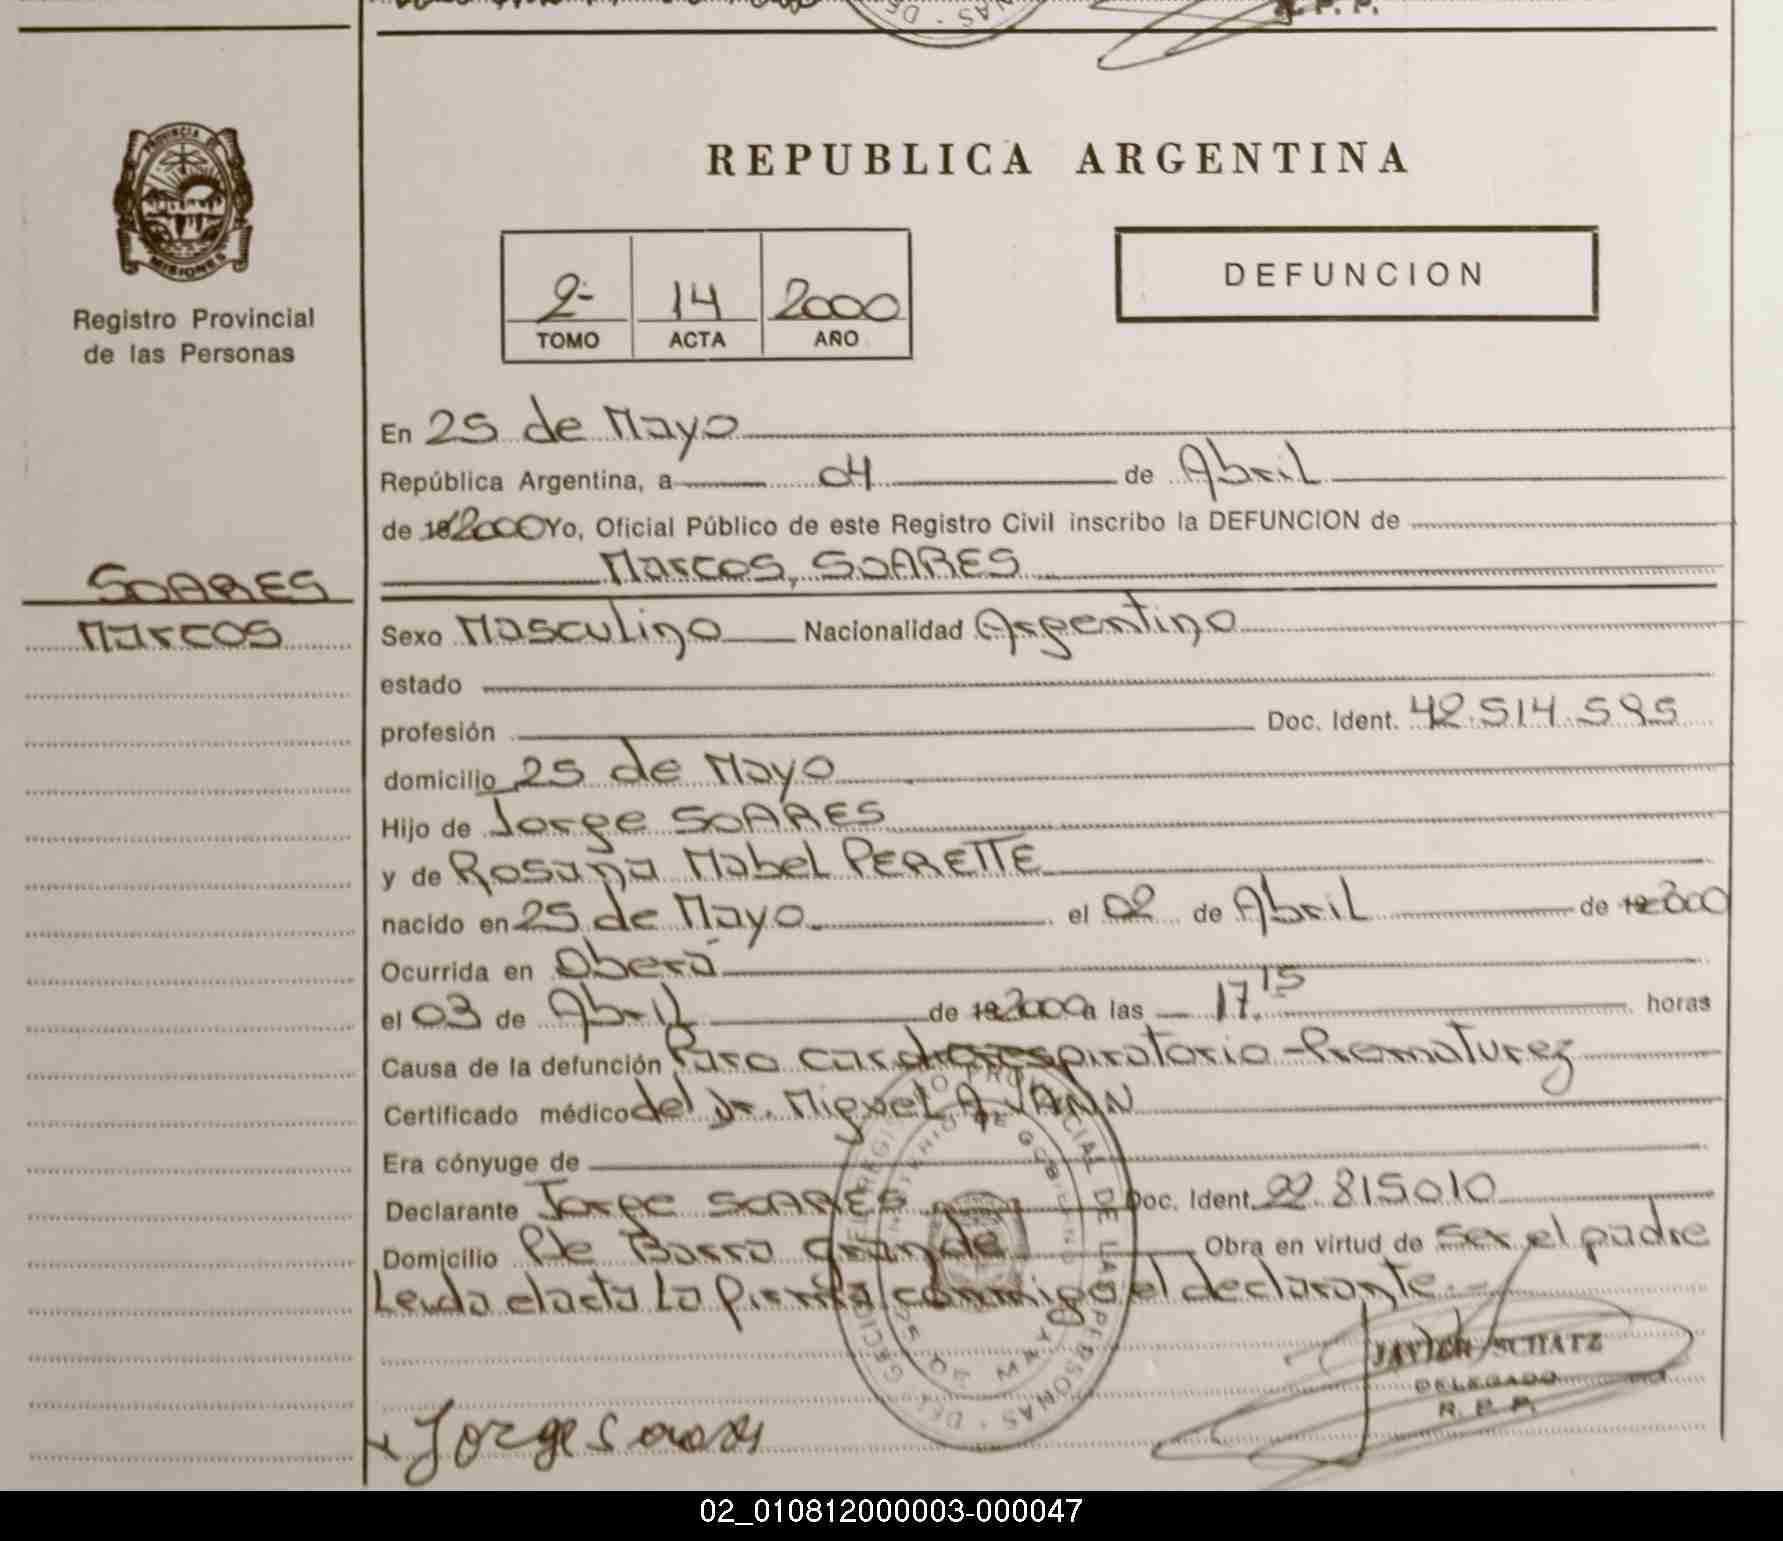 R. P. P.
PROVINCIA DE
MISIONES
Registro Provincial
de las Personas
REPUBLICA ARGENTINA
2- 14 2000
TOMO ACTA AÑO
DEFUNCION
En 25 de Mayo
República Argentina, a 04 de Abril
de 19 2000 Yo, Oficial Público de este Registro Civil inscribo la DEFUNCION de
Marcos, SOARES
SOARES
Marcos
Sexo Masculino Nacionalidad Argentino
estado
profesión Doc. Ident. 42.514.595
domicilio 25 de Mayo
Hijo de Jorge SOARES
y de Rosana Mabel PERETTE
nacido en 25 de Mayo el 02 de Abril de 19 2000
Ocurrida en Oberá
el 03 de Abril de 19 2000 a las 17.15 horas
Causa de la defunción Paro cardiorespiratorio - Prematurez
Certificado médico del Dr. Miguel A. VANN
Era cónyuge de
Declarante Jorge SOARES Doc. Ident. 22.815010
Domicilio Pje Barra Grande Obra en virtud de ser el padre
Leida el acta la firma conmigo el declarante.-
JAVIER SCHATZ
DELEGADO
R. P. P.
x Jorge Soares
02_010812000003-000047